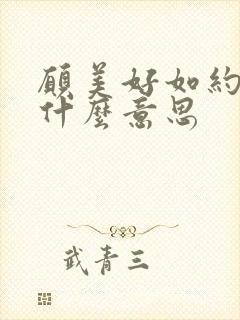 願美好如約
什麼意思
武青三